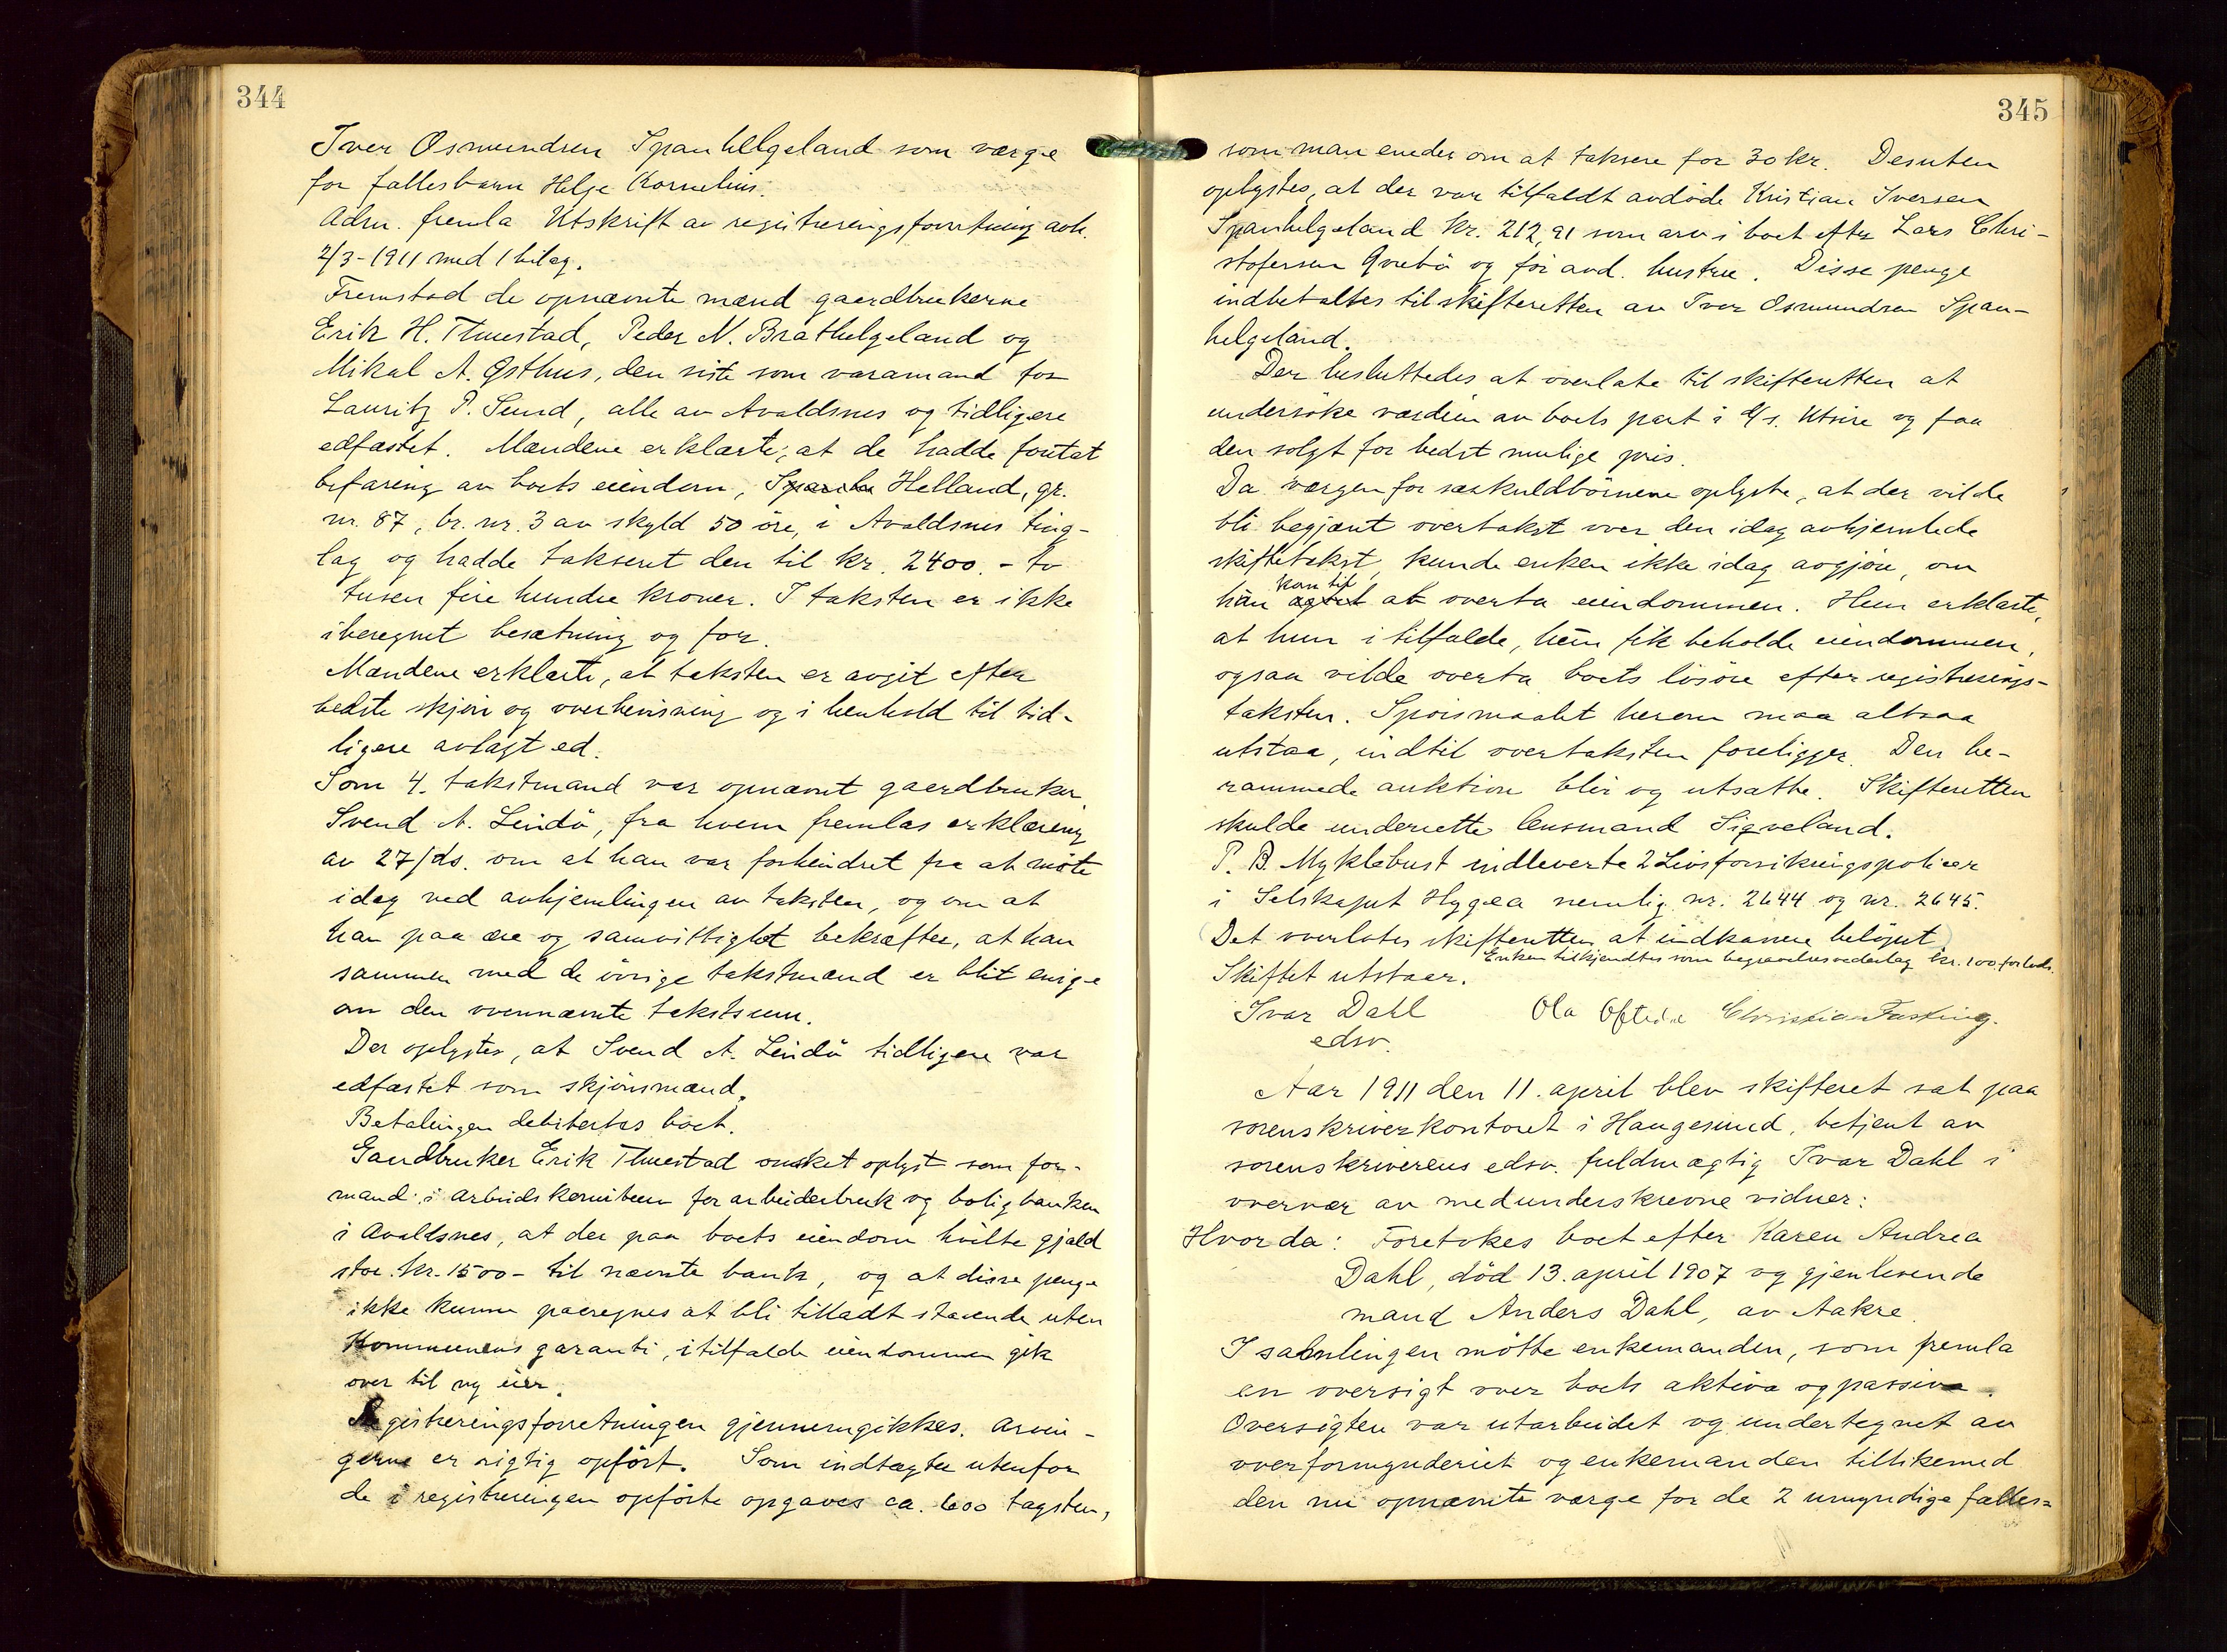 344
Iver Osmundsen Spanhelgeland som værge
for fællesbarn Helge Kornelius.
Adm. fremla Utskrift av registreringsforretning avh.
2/3-1911 med 1 bilag.
Fremstod de opnævnte mænd gaardbrukerne
Erik H. Tuestad, Peder N. Brathelgeland og
Mikal A. Østhus, den siste som varamand for
Lauritz P. Sund, alle av Avaldsnes og tidligere
edfæstet. Mændene erklærte, at de hadde foretat
befaring av boets eiendom, Helland, gr.
nr. 87, br. nr. 3 av skyld 50 öre, i Avaldsnes ting-
lag og hadde takseret den til kr. 2400.- to
tusen fire hundre kroner. I taksten er ikke
iberegnet besætning og for.
Mændene erklærte, at taksten er avgit efter
bedste skjön og overbevisning og i henhold til tid-
ligere avlagt ed.
Som 4. takstmand var opnævnt gaardbruker
Svend A. Lindö, fra hvem fremlas erklæring
av 27/ds. om at han var forhindret fra at möte
idag ved avhjemlingen av taksten, og om at
han paa ære og samvittighet bekræfter, at han
sammen med de övrige takstmænd er blit enige
om den ovennævnte takstsum.
Der oplystes, at Svend A. Lindö tidligere var
edfæstet som skjönsmand.
Betalingen debitertes boet.
Gardbruker Erik Tuestad onsket oplyst som for-
mand i arbeidskomiteen for arbeiderbruk og boligbanken
i Avaldsnes, at der paa boets eiendom hvilte gjæld
stor kr. 1500- til nævnte bank, og at disse penge
ikke kunne paaregnes at bli tilladt staaende uten
Kommunens garanti, i tilfælde eiendommen gik
over til ny eier.
Registreringsforretningen gjennemgikkes. Arvin-
gerne er rigtig opfört. Som indtægter utenfor
de i registreringen opförte opgaves ca. 600 tagsten,
345
som man enedes om at taksere for 30 kr. Desuten
oplystes, at der var tilfaldt avdöde Kristian Iversen
Spanhelgeland kr. 212,91 som arv i boet efter Lars Chri-
stofersen Qvebö og för avd. hustru. Disse penge
indbetaltes til skifteretten av Iver Osmundsen Span-
helgeland.
Der besluttedes at overlate til skifteretten at
undersöke værdien av boets part i d/s. Utsire og faa
den solgt for bedst mulige pris.
Da værgen for særkuldbörnene oplyste, at der vilde
bli begjært overtakst over den idag avhjemlede
skiftetakst, kunde enken ikke idag avgjöre, om
kom til
hun agtet at overta eiendommen. Hun erklærte,
at hun i tilfælde, hun fik beholde eiendommen,
ogsaa vilde overta boets lösöre efter registrerings-
taksten. Spörsmaalet herom maa altsaa
utstaa, indtil overtaksten foreligger. Den be-
rammede auktion blir og utsatte. Skifteretten
skulde underrette lensmand Sigveland.
P. B. Myklebust indleverte 2 Livsforsikringspolicer
i Selskapet Hygea nemlig nr. 2644 og nr. 2645.
Det overlates skifteretten at indkassere belöpet
Enken tilkjendtes som begravelsesvederlag kr. 100 forlods.
Skiftet utstaar.
Ivar Dahl Ola Oftedal Christian Fasting.
edsv.
Aar 1911 den 11. april blev skifteret sat paa
sorenskriverkontoret i Haugesund, betjent av
sorenskriverens edsv. fuldmægtig Ivar Dahl i
overvær av medunderskrevne vidner:
Hvorda: Foretokes boet efter Karen Andrea
Dahl, död 13. april 1907 og gjenlevende
mand Anders Dahl, av Aakre.
I samlingen mötte enkemanden, som fremla
en oversigt over boets aktiva og passiva.
Oversigten var utarbeidet og undertegnet av
overformynderiet og enkemanden tillikemed
den nu opnævnte værge for de 2 umyndige fælles=